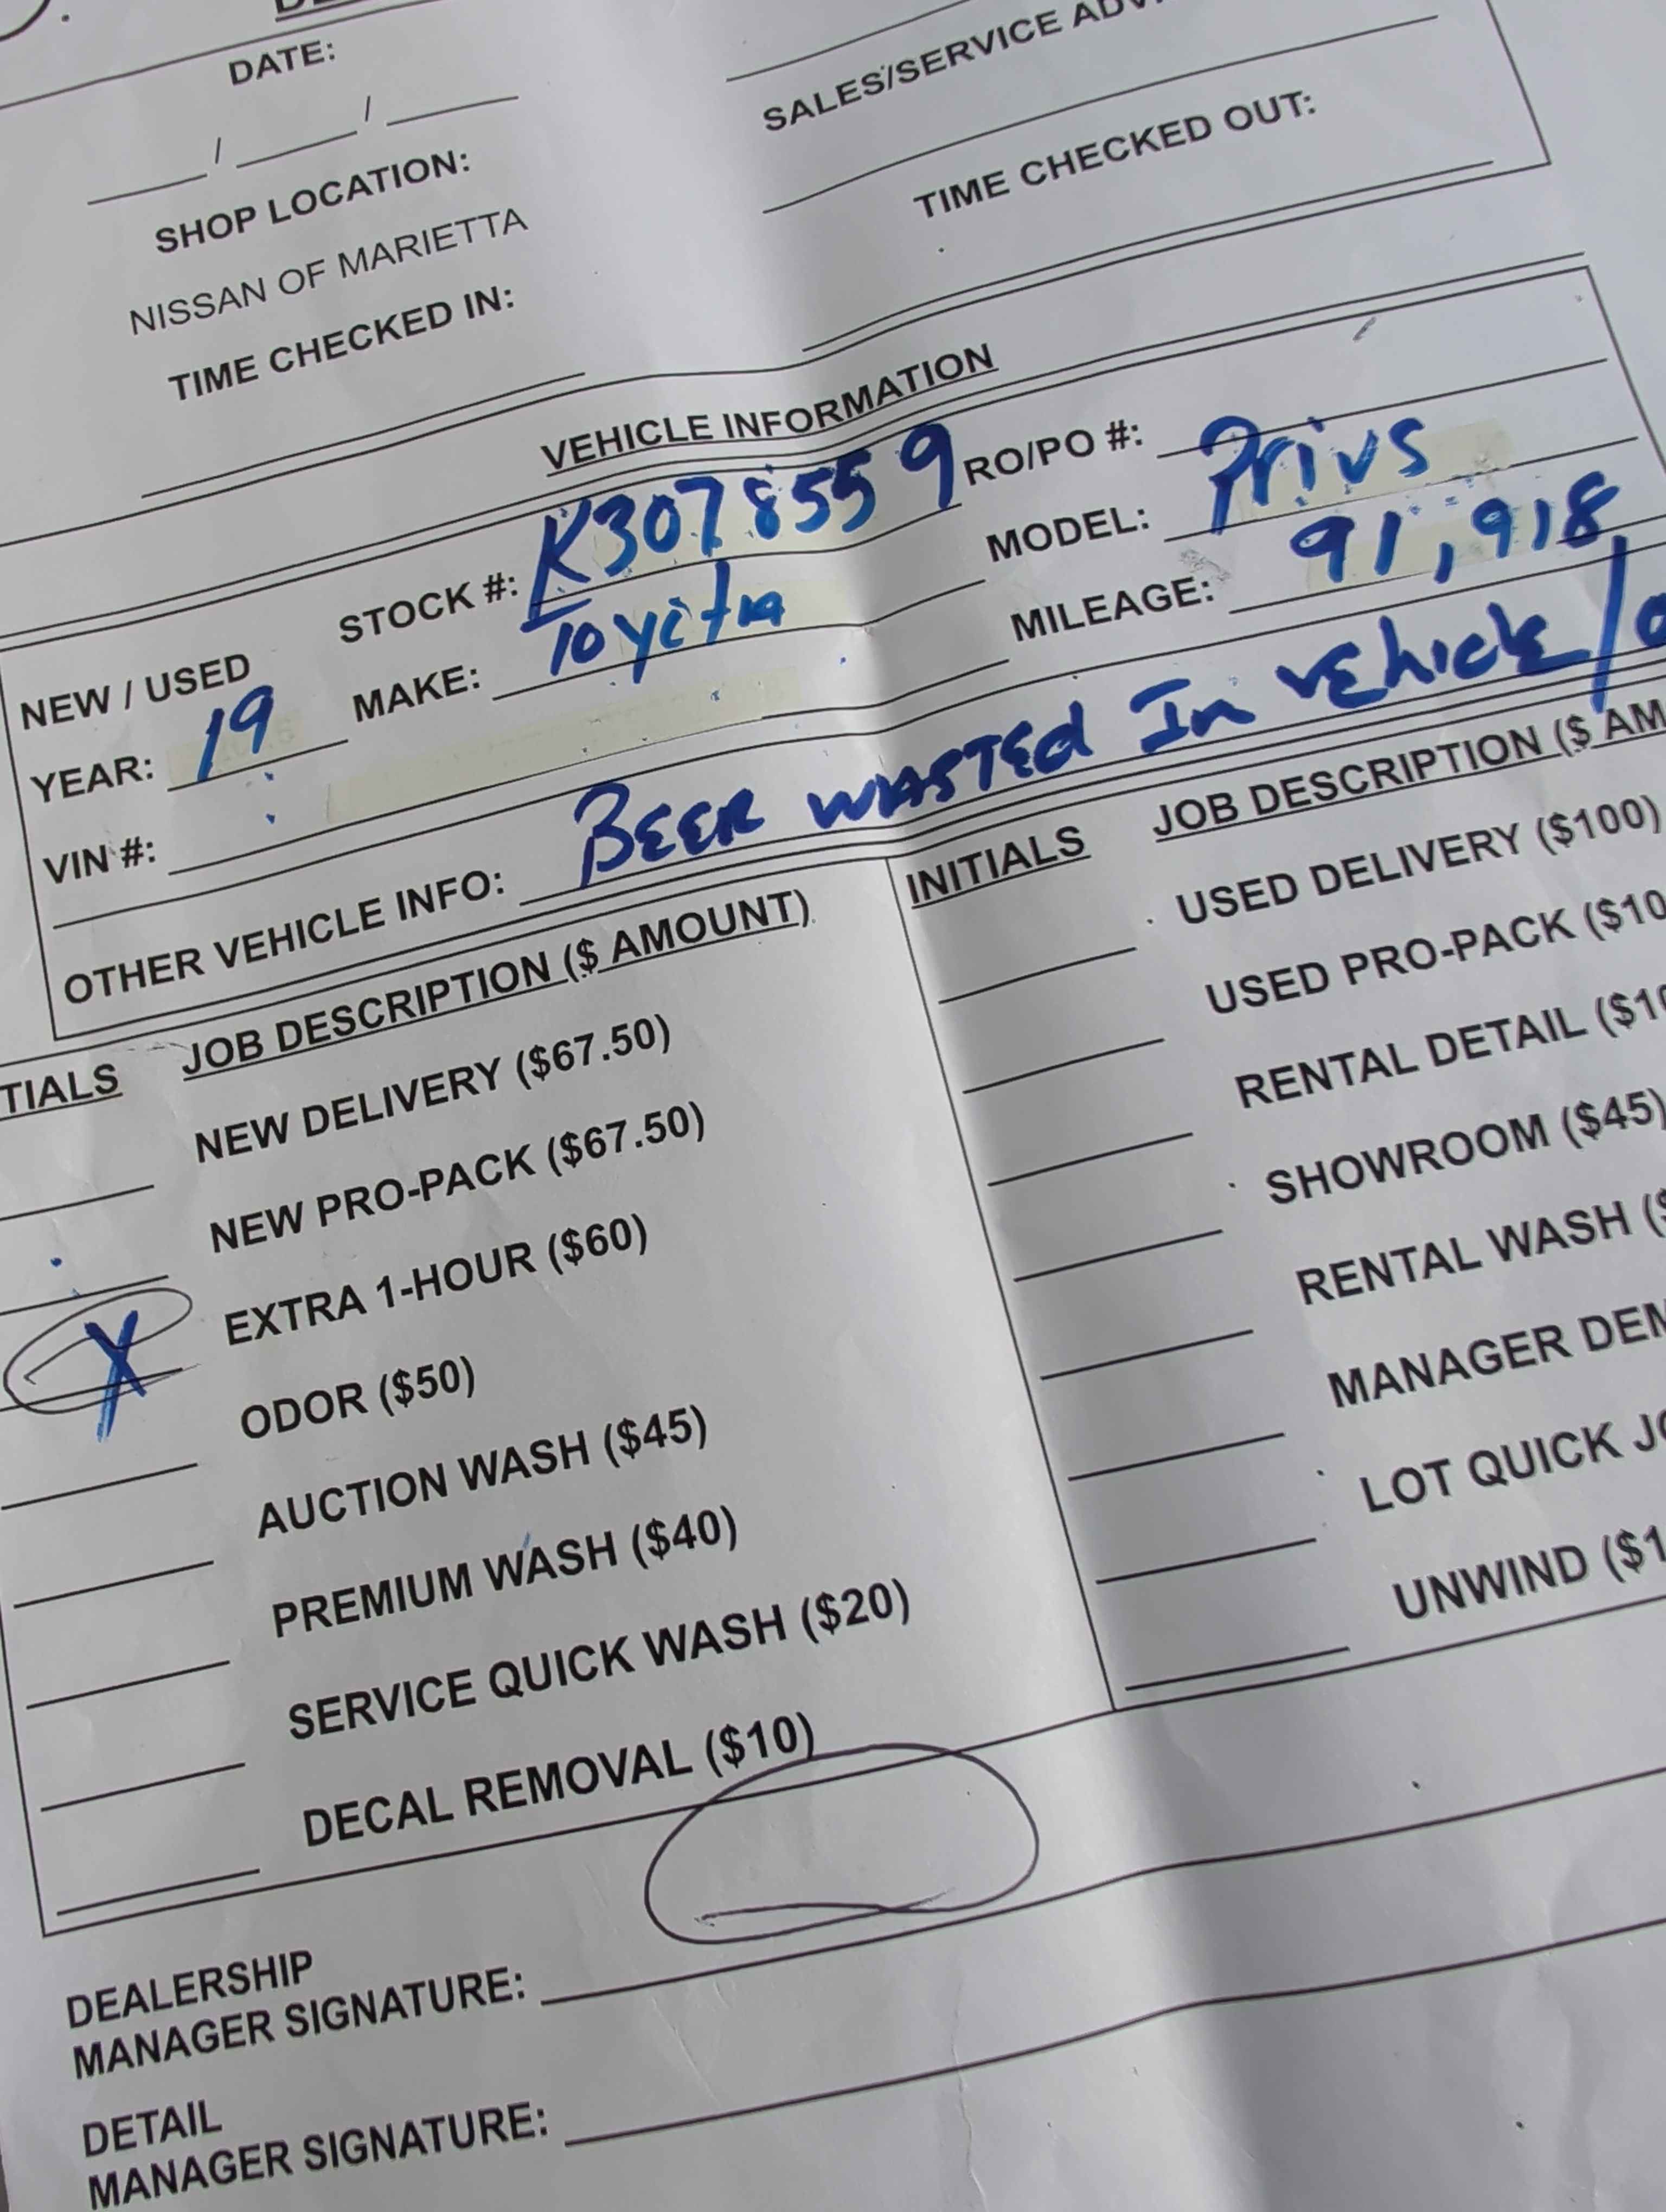 DATE:
/ /
SALES/SERVICE
SHOP LOCATION:
NISSAN OF MARIETTA
TIME CHECKED OUT:
TIME CHECKED IN:
VEHICLE INFORMATION
NEW / USED STOCK #: K3078559 RO/PO #:
YEAR: 19 MAKE: Toyota MODEL: Prius
VIN #: MILEAGE: 91,918
OTHER VEHICLE INFO: BEER WASTED In vEhiclE/
JOB DESCRIPTION ($ AMOUNT)
NEW DELIVERY ($67.50)
NEW PRO-PACK ($67.50)
X EXTRA 1-HOUR ($60)
ODOR ($50)
AUCTION WASH ($45)
PREMIUM WASH ($40)
SERVICE QUICK WASH ($20)
DECAL REMOVAL ($10)
INITIALS JOB DESCRIPTION ($
USED DELIVERY ($100)
USED PRO-PACK
RENTAL DETAIL
SHOWROOM ($45)
RENTAL WASH
MANAGER
LOT QUICK
UNWIND
DEALERSHIP
MANAGER SIGNATURE:
DETAIL
MANAGER SIGNATURE: